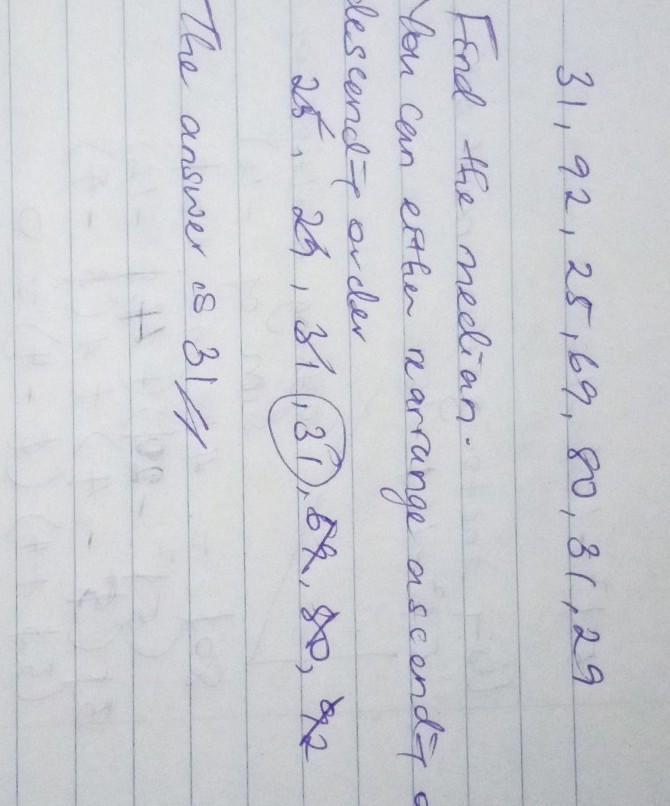 31, 92, 25, 69, 80, 31, 29
Find the median.
You can either rearrange ascend=g
descend=g order
25, 29, 31, 31, 69, 80, 92
The answer is 31